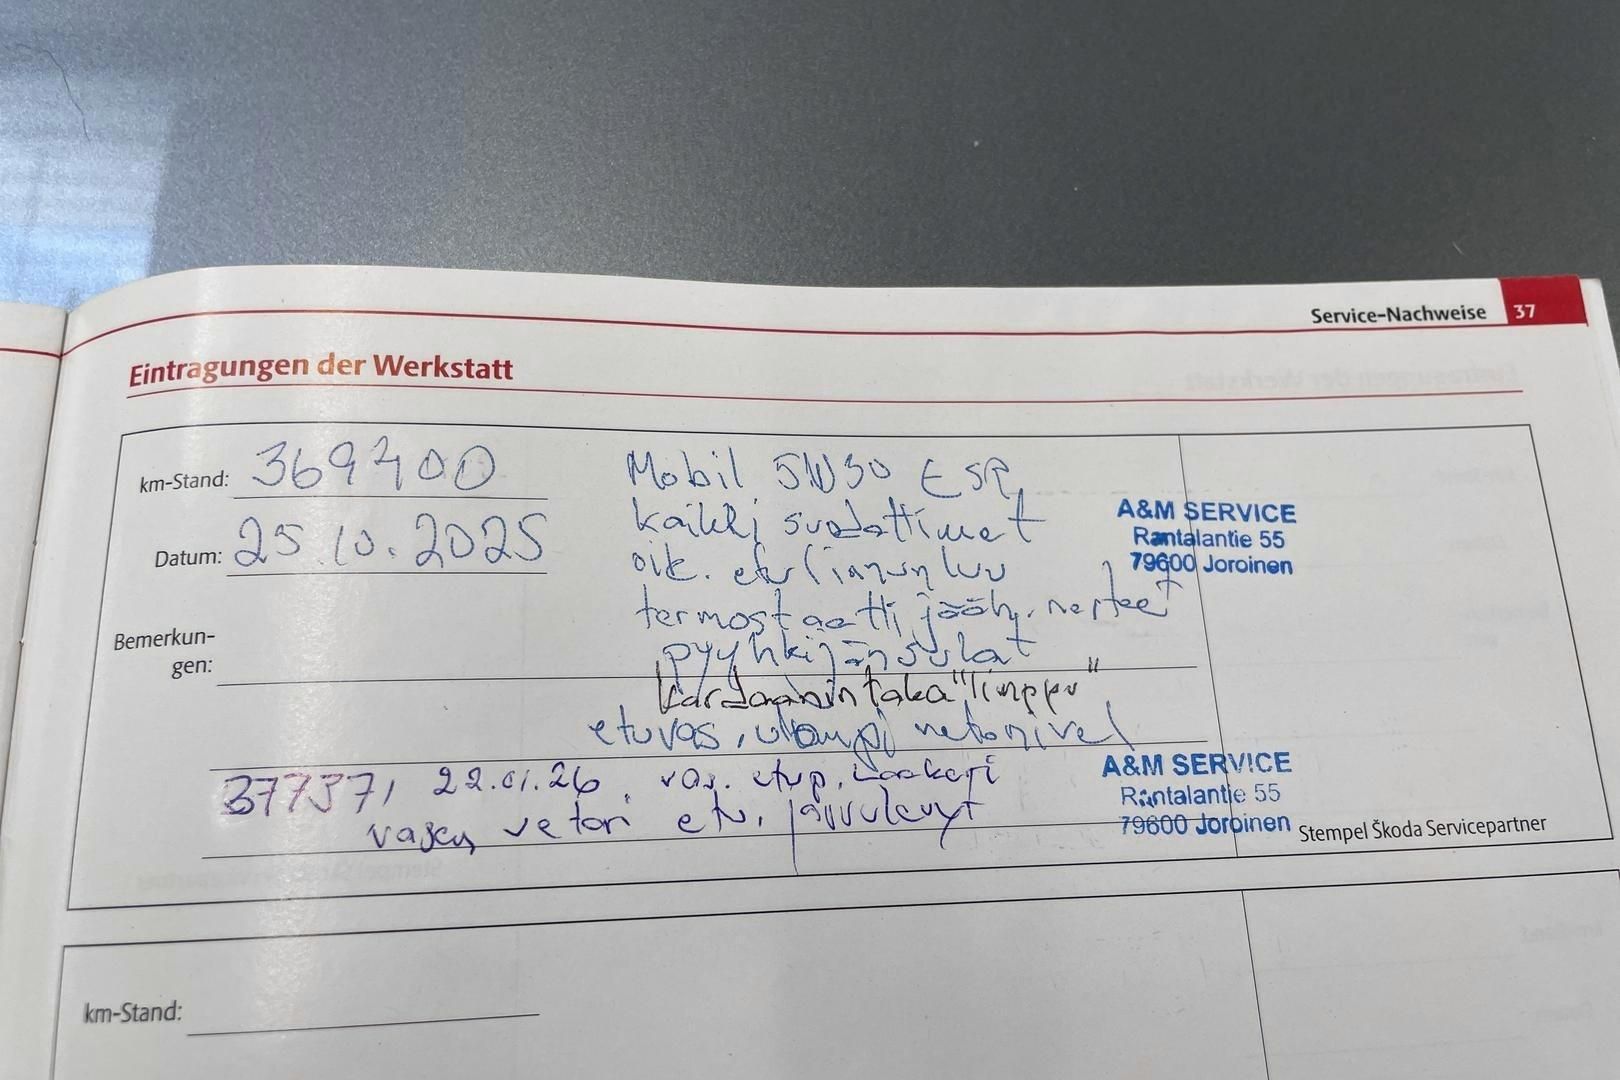 Service-Nachweise 37
Eintragungen der Werkstatt
km-Stand: 369400
Mobil 5W30 ESP,
Datum: 25.10.2025
kaikki suodattimet
A&M SERVICE
Rantalantie 55
79600 Joroinen
oik. etu
termostaatti, jääh. nesteet
Bemerkun-
gen:
pyyhkijänsulat
kardaanin taka "limppu"
etuvas, ulompi vetonivel
377371 22.01.26, vas. etup. laakeri
vasen vetari etu. jarrulevyt
A&M SERVICE
Rantalantie 55
79600 Joroinen
Stempel Škoda Servicepartner
km-Stand: